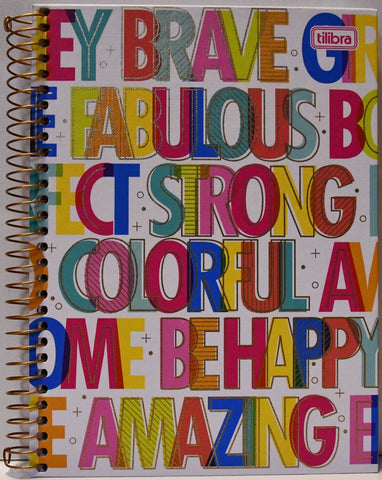 tilibra
EY BRAVE GIR
E FABULOUS BO
FECT STRONG
COLORFUL AW
OME BE HAPPY
E AMAZING E